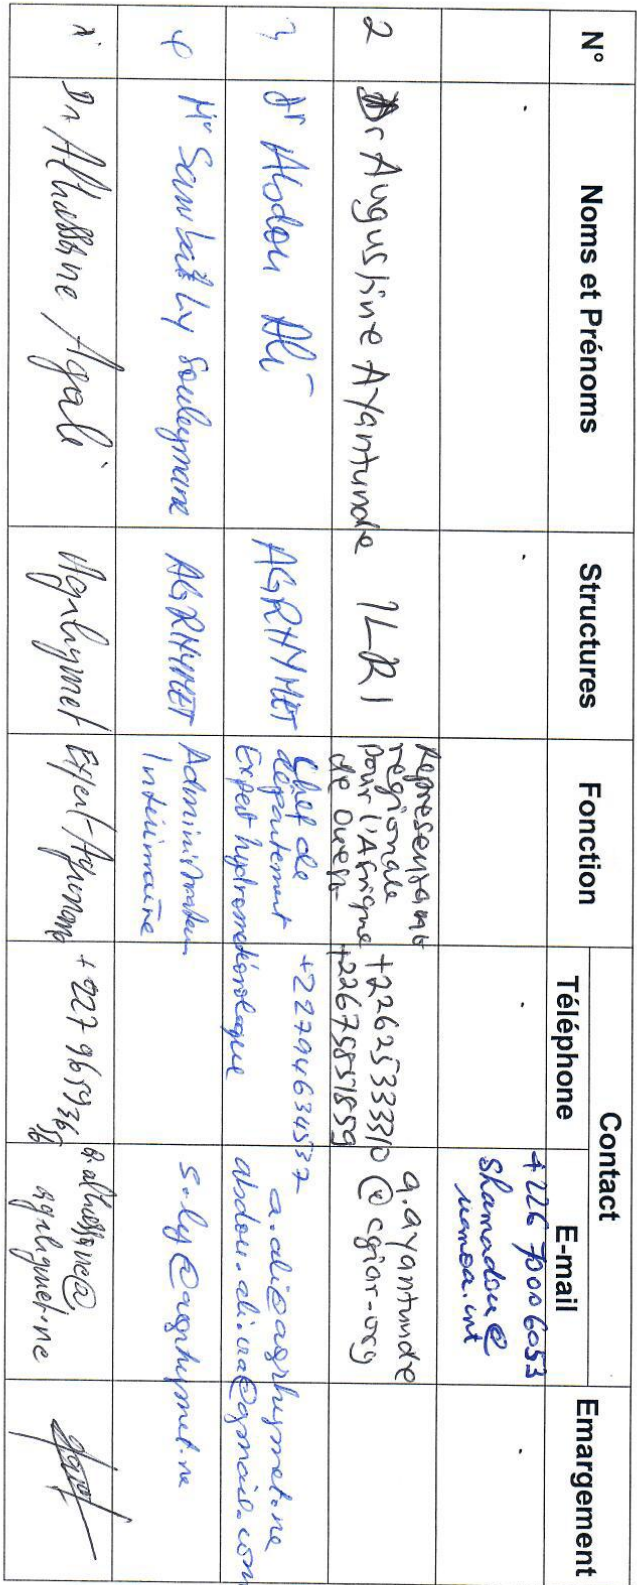 N° Noms et Prénoms Structures Fonction Contact Emargement
Téléphone E-mail
+226 70006053
shamadou@
uemoa.int
2 Dr Augustine Ayantunde ILRI Representant
regionale
pour l'Afrique
de Ouest
+22625333310
+22675851859
a.ayantunde
@cgiar.org
3 dr Abdou Ali AGRHYMET Chef de
département
Expert hydrométéorologue
+22794634537
a.ali@agrhymet.ne
abdou.ali.ira@gmail.com
4 Mr Sambat Ly Souleymane AGRHYMET Administrateur
Intérimaire
s.ly@agrhymet.ne
Dr Alhassane Agali Agrhymet Expert-Agronome
+227 965936
56
a.alhassane@
agrhymet.ne